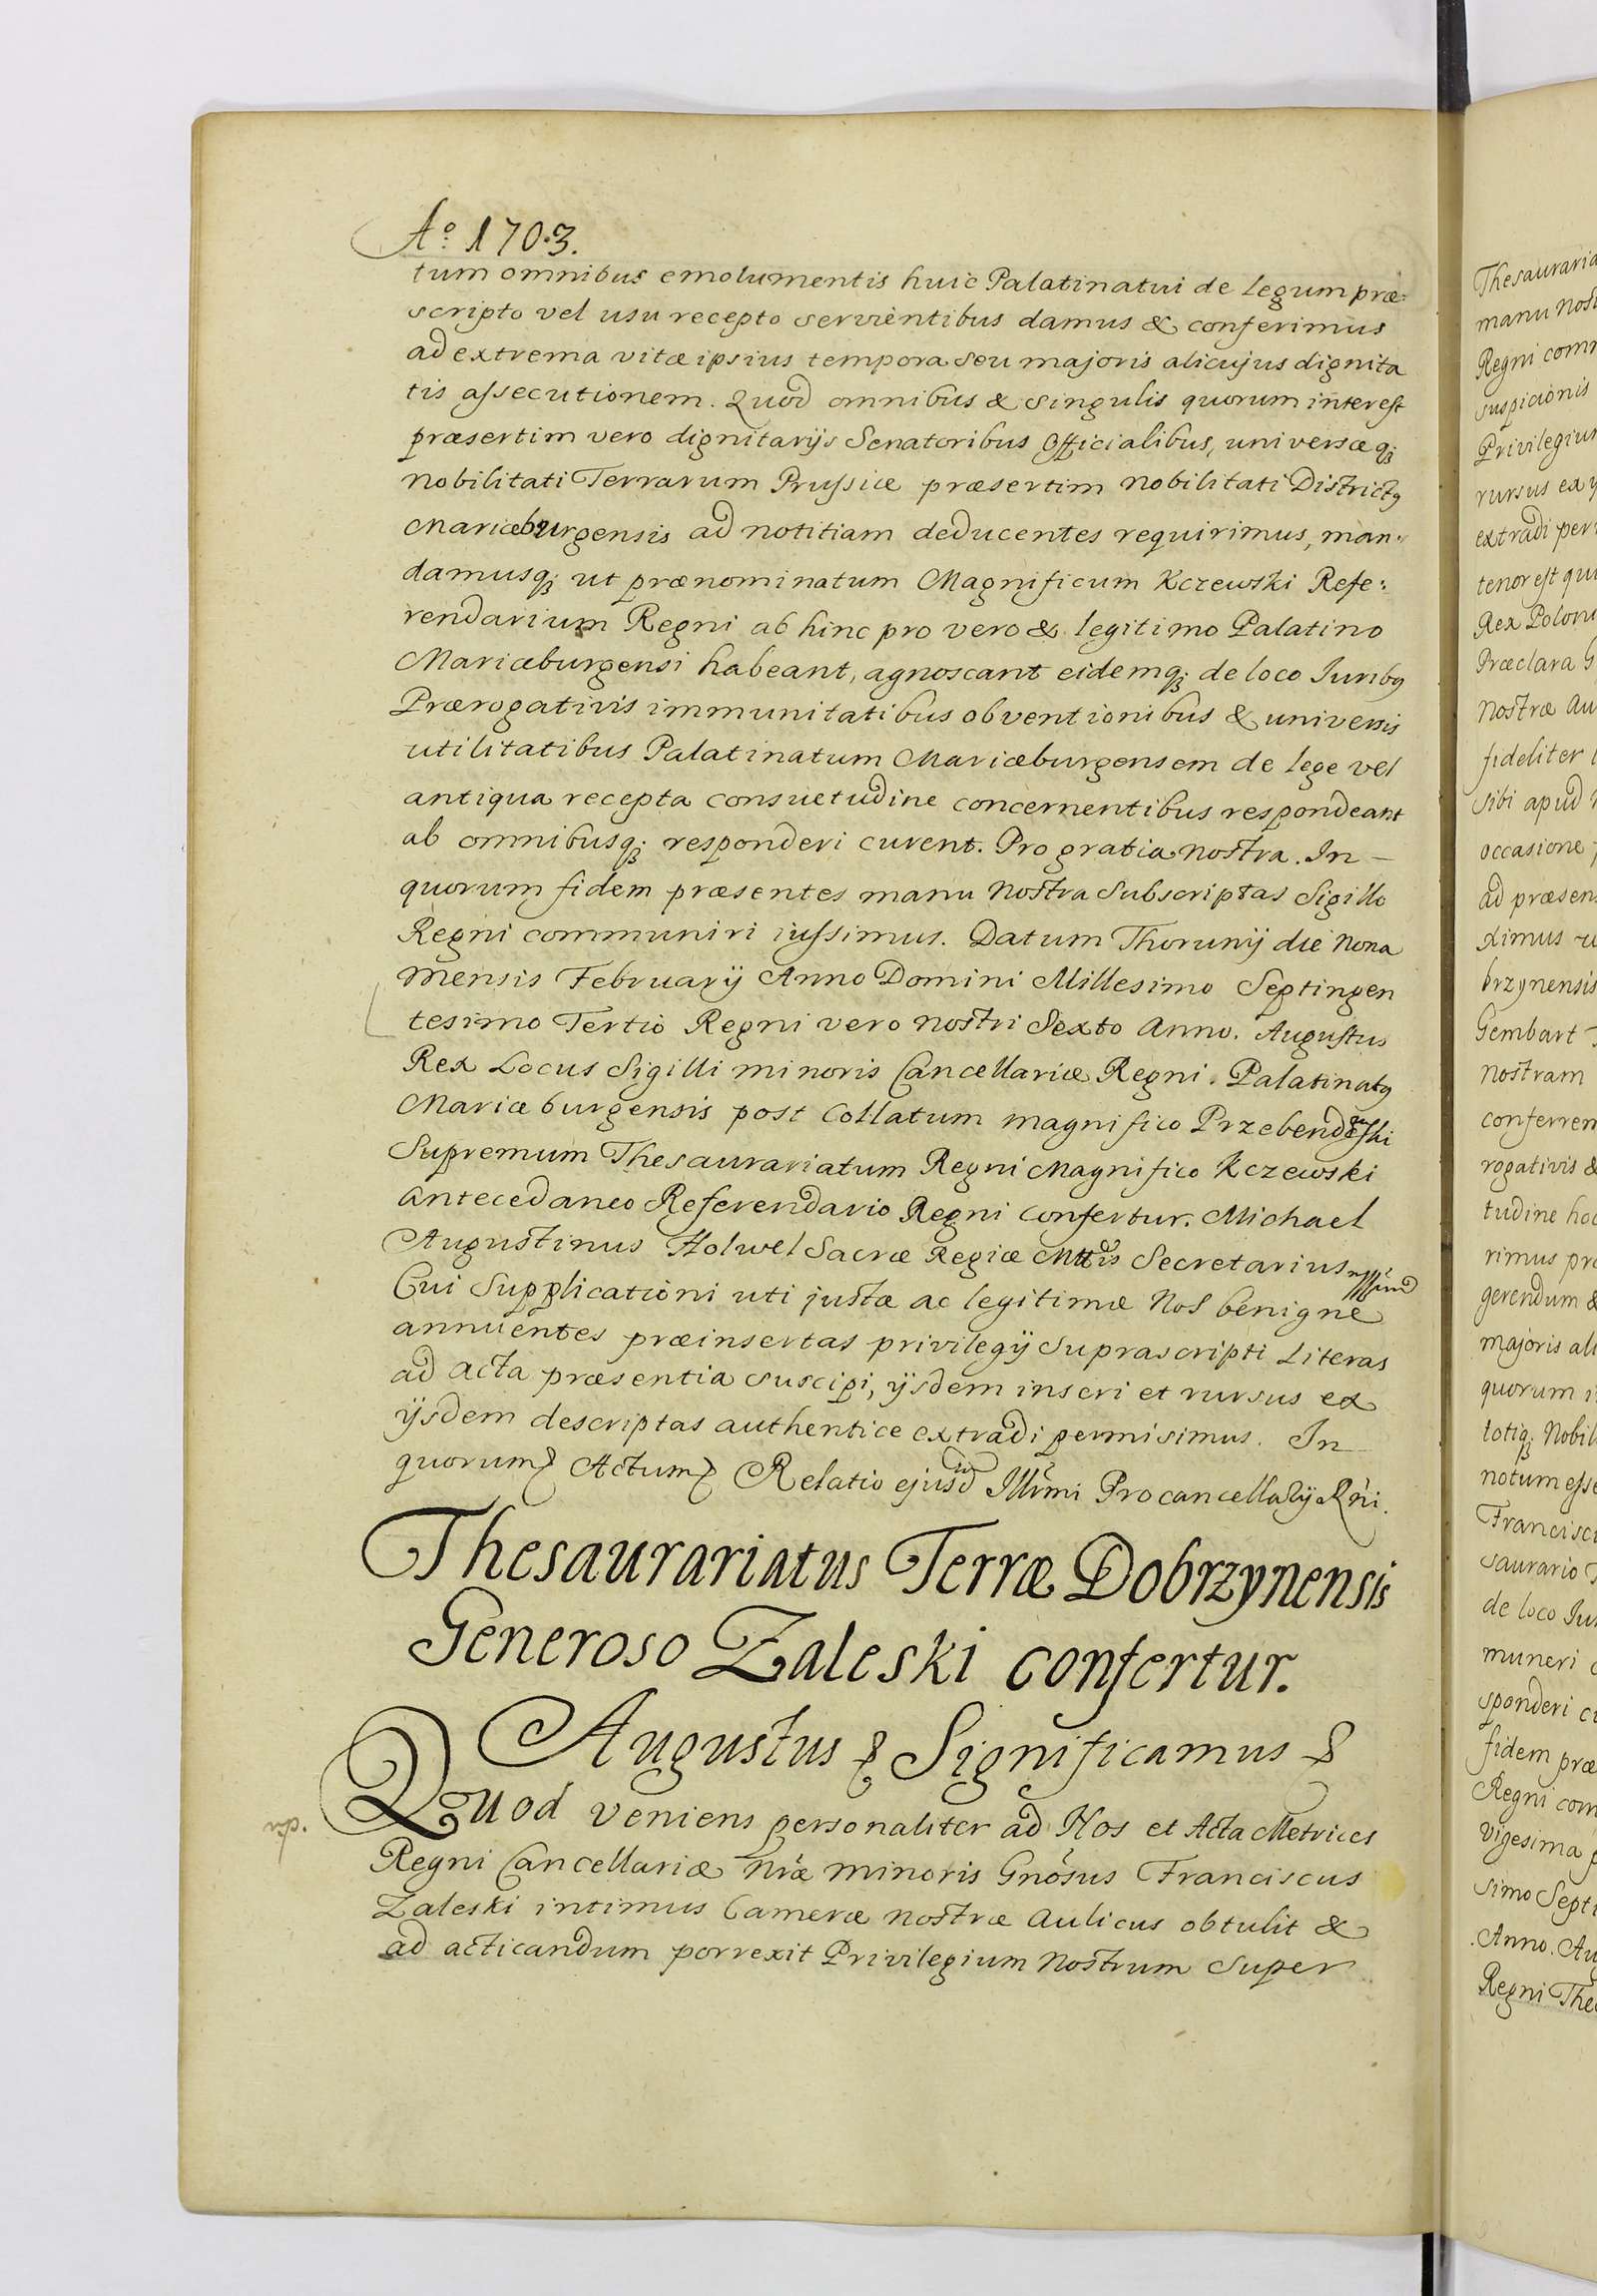 Aº 1703.
tum omnibus emolumentis huic Palatinatui de Legum præ:
scripto vel usu recepto servientibus damus & conferimus
ad extrema vitæ ipsius tempora seu majoris alicujus dignita
tis assecutionem. Quod omnibus & singulis quorum interest
præsertim vero dignitarijs Senatoribus Officialibus, universæq;
nobilitati Terrarum Prussiæ præsertim nobilitati Districtꝰ
Mariæburgensis ad notitiam deducentes requirimus, man-
damusq; ut prænominatum Magnificum Kczewski Refe:
rendarium Regni ab hinc pro vero & legitimo Palatino
Mariæburgensi habeant, agnoscant eidemq; de loco Juribꝰ
Prærogativis immunitatibus obventionibus & universis
utilitatibus Palatinatum Mariæburgensem de lege vel
antiqua recepta consuetudine concernentibus respondeant
ab omnibusq; responderi curent. Pro gratia nostra. In -
quorum fidem præsentes manu nostra subscriptas Sigillo
Regni communiri iussimus. Datum Thorunij die nona
mensis February Anno Domini Millesimo Septingen
tesimo Tertio Regni vero nostri Sexto Anno. Augustus
Rex Locus Sigilli minoris Cancellariæ Regni. Palatinatꝰ
Mariæburgensis post Collatum magnifico Przebendowski
Supremum Thesaurariatum Regni Magnifico Kczewski
antecedaneo Referendario Regni confertur. Michael
Augustinus Holwel Sacræ Regiæ Mttis Secretarius
Cui Supplicationi uti justæ ac legitimæ Nos benigne
annuentes præinsertas privilegij suprascripti Literas
ad acta præsentia suscipi, ijsdem inseri et rursus ex
ijsdem descriptas authentice extradi permisimus. In
quorum Actum Relatio ejusd Illrmi Procancellarij Rni.
Thesaurariatus Terræ Dobrzynensis
Generoso Zaleski confertur.
Augustus & Significamus &
Quod veniens personaliter ad Nos et Acta Metrices
np.
Regni Cancellariæ nræ minoris Gnosus Franciscus
Zaleski intimus Cameræ nostræ Aulicus obtulit &
ad acticandum porrexit Privilegium nostrum super
Thesauraria
manu nost
Regni comm
suspicionis
Privilegium
rursus ex y
extradi per
tenor est qui
Rex Poloni
Præclara G
nostræ Au
fideliter
sibi apud
occasione
ad præsen
ximus
brzynensis
Gembart
nostram
conferren
rogativis &
tudine hoc
rimus pro
gerendum &
majoris ali
quorum i
totiq; Nobil
notum esse
Francisci
saurario
de loco Iu
muneri
sponderi cu
fidem præ
Regni com
vigesima
simo Septi
Anno. Au
Regni The